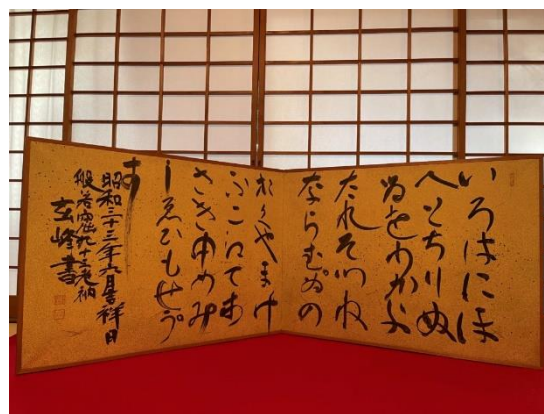 いろはにほ
へとちりぬ
るをわかよ
たれそつね
ならむうゐの
おくやまけ
ふこえてあ
さきゆめみ
しゑひもせ
す
昭和三十三年九月吉祥日
般若窟九十三老衲
玄峰書